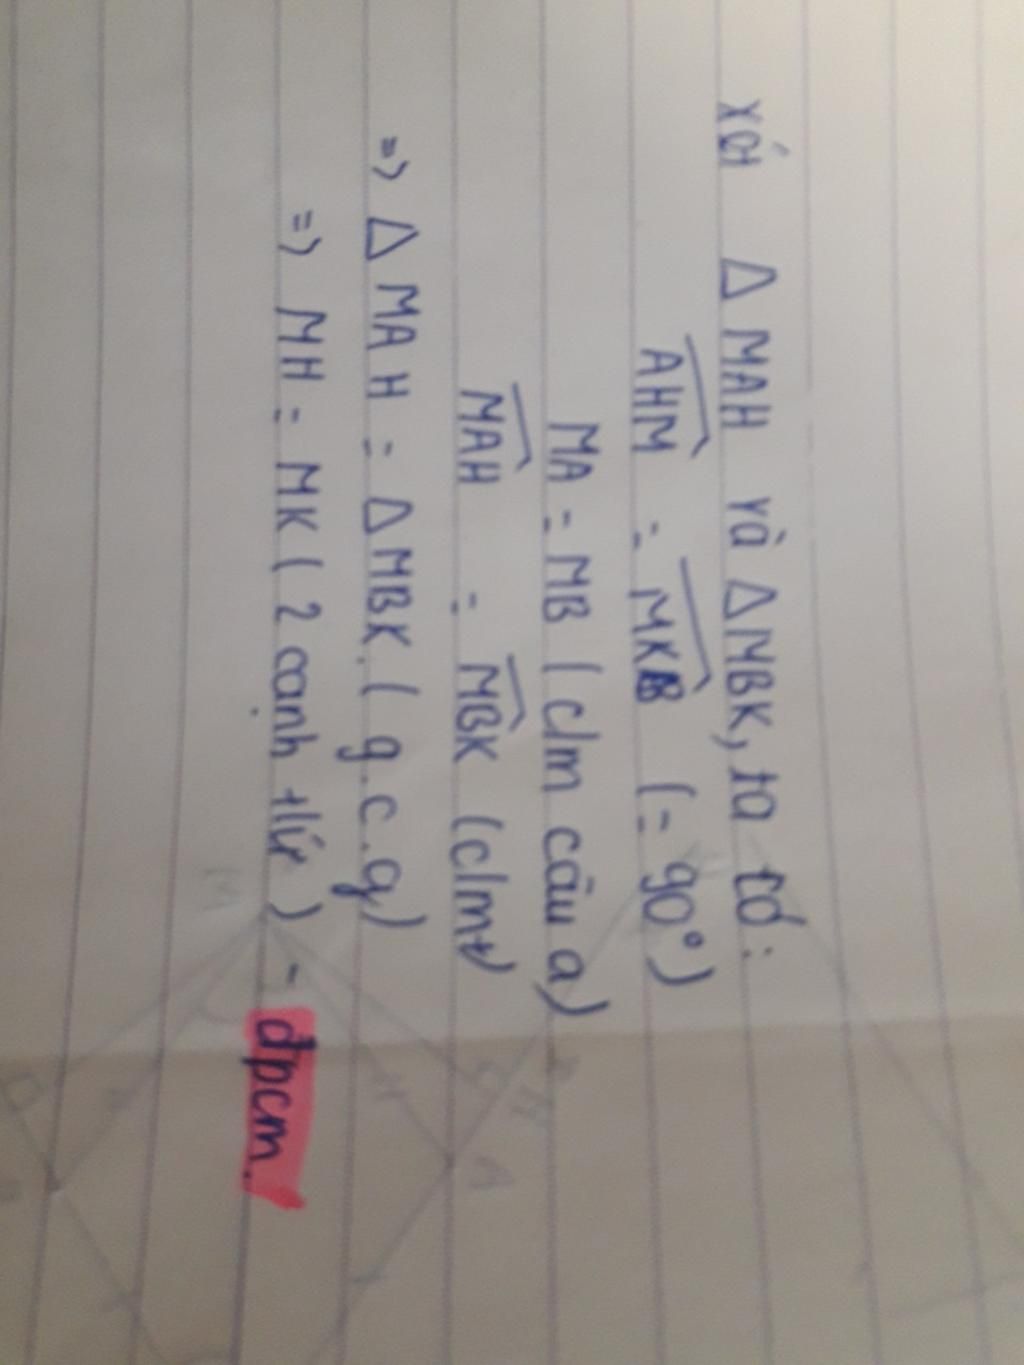 Xét Δ MAH và ΔMBK, ta có:
AHM = MKB (= 90°)
MA = MB (c/m câu a)
MAH = MBK (c/mt)
=> Δ MAH = Δ MBK. (g.c.g)
=> MH = MK ( 2 cạnh t/ứ ) - đpcm.